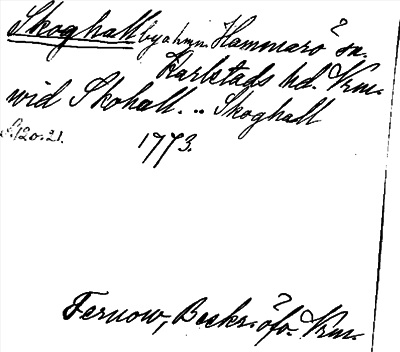 Skoghall by o hmn. Hammarö sn.
Karlstads hd. Vrm.
wid Skohall. .. Skoghall
S. 120. 21. 1773.
Fernow, Beskr. öfv. Vrm.